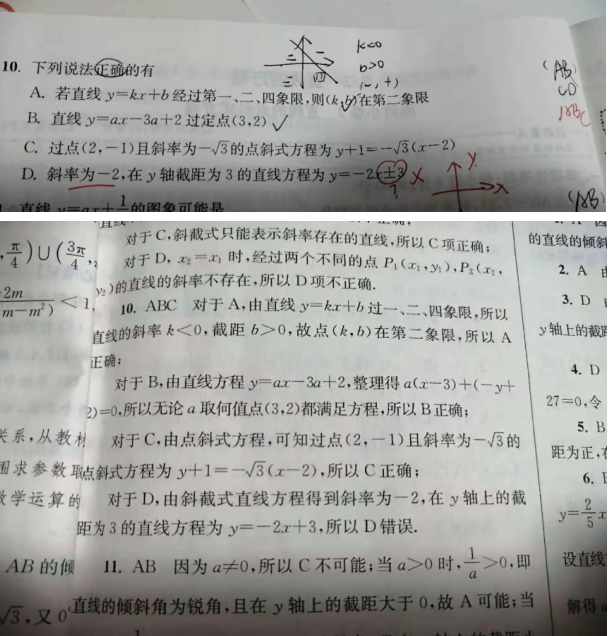 k<0
b>0
(-, +)
二 一
三 四
10. 下列说法正确的有
A. 若直线 y=kx+b 经过第一、二、四象限,则(k,b)在第二象限
B. 直线 y=ax-3a+2 过定点(3,2) ✓
C. 过点(2,-1)且斜率为-√3的点斜式方程为 y+1=-√3(x-2)
D. 斜率为-2,在 y 轴截距为 3 的直线方程为 y=-2x±3 ×
?
y
x
(AB)
CD
ABC
(AB)
直线 y=ax+1/a 的图象可能是
π/4)∪(3π/4,
2m
m-m²)
<1,
关系,从教材
围求参数取
数学运算的
AB 的倾
√3,又 0°
对于 C,斜截式只能表示斜率存在的直线,所以 C 项正确;
对于 D,x₂=x₁ 时,经过两个不同的点 P₁(x₁,y₁),P₂(x₂,
y₂)的直线的斜率不存在,所以 D 项不正确.
10. ABC 对于 A,由直线 y=kx+b 过一、二、四象限,所以
直线的斜率 k<0,截距 b>0,故点(k,b)在第二象限,所以 A
正确;
对于 B,由直线方程 y=ax-3a+2,整理得 a(x-3)+(-y+
2)=0,所以无论 a 取何值点(3,2)都满足方程,所以 B 正确;
对于 C,由点斜式方程,可知过点(2,-1)且斜率为-√3的
点斜式方程为 y+1=-√3(x-2),所以 C 正确;
对于 D,由斜截式直线方程得到斜率为-2,在 y 轴上的截
距为 3 的直线方程为 y=-2x+3,所以 D 错误.
11. AB 因为 a≠0,所以 C 不可能;当 a>0 时,1/a>0,即
直线的倾斜角为锐角,且在 y 轴上的截距大于 0,故 A 可能;当
的直线的倾斜
2. A 由
3. D
y 轴上的截距
4. D
27=0,令
5. B
距为正,在
6.
y=2/5x
设直线
解得